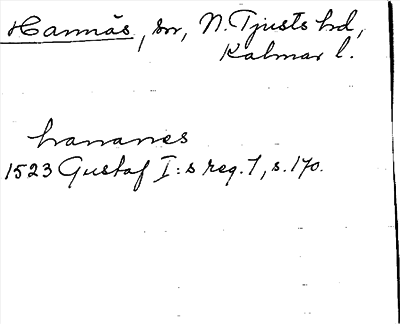 Hannäs, sn, N. Tjusts hd,
Kalmar l.
hananes
1523 Gustaf I:s reg. 1, s. 170.